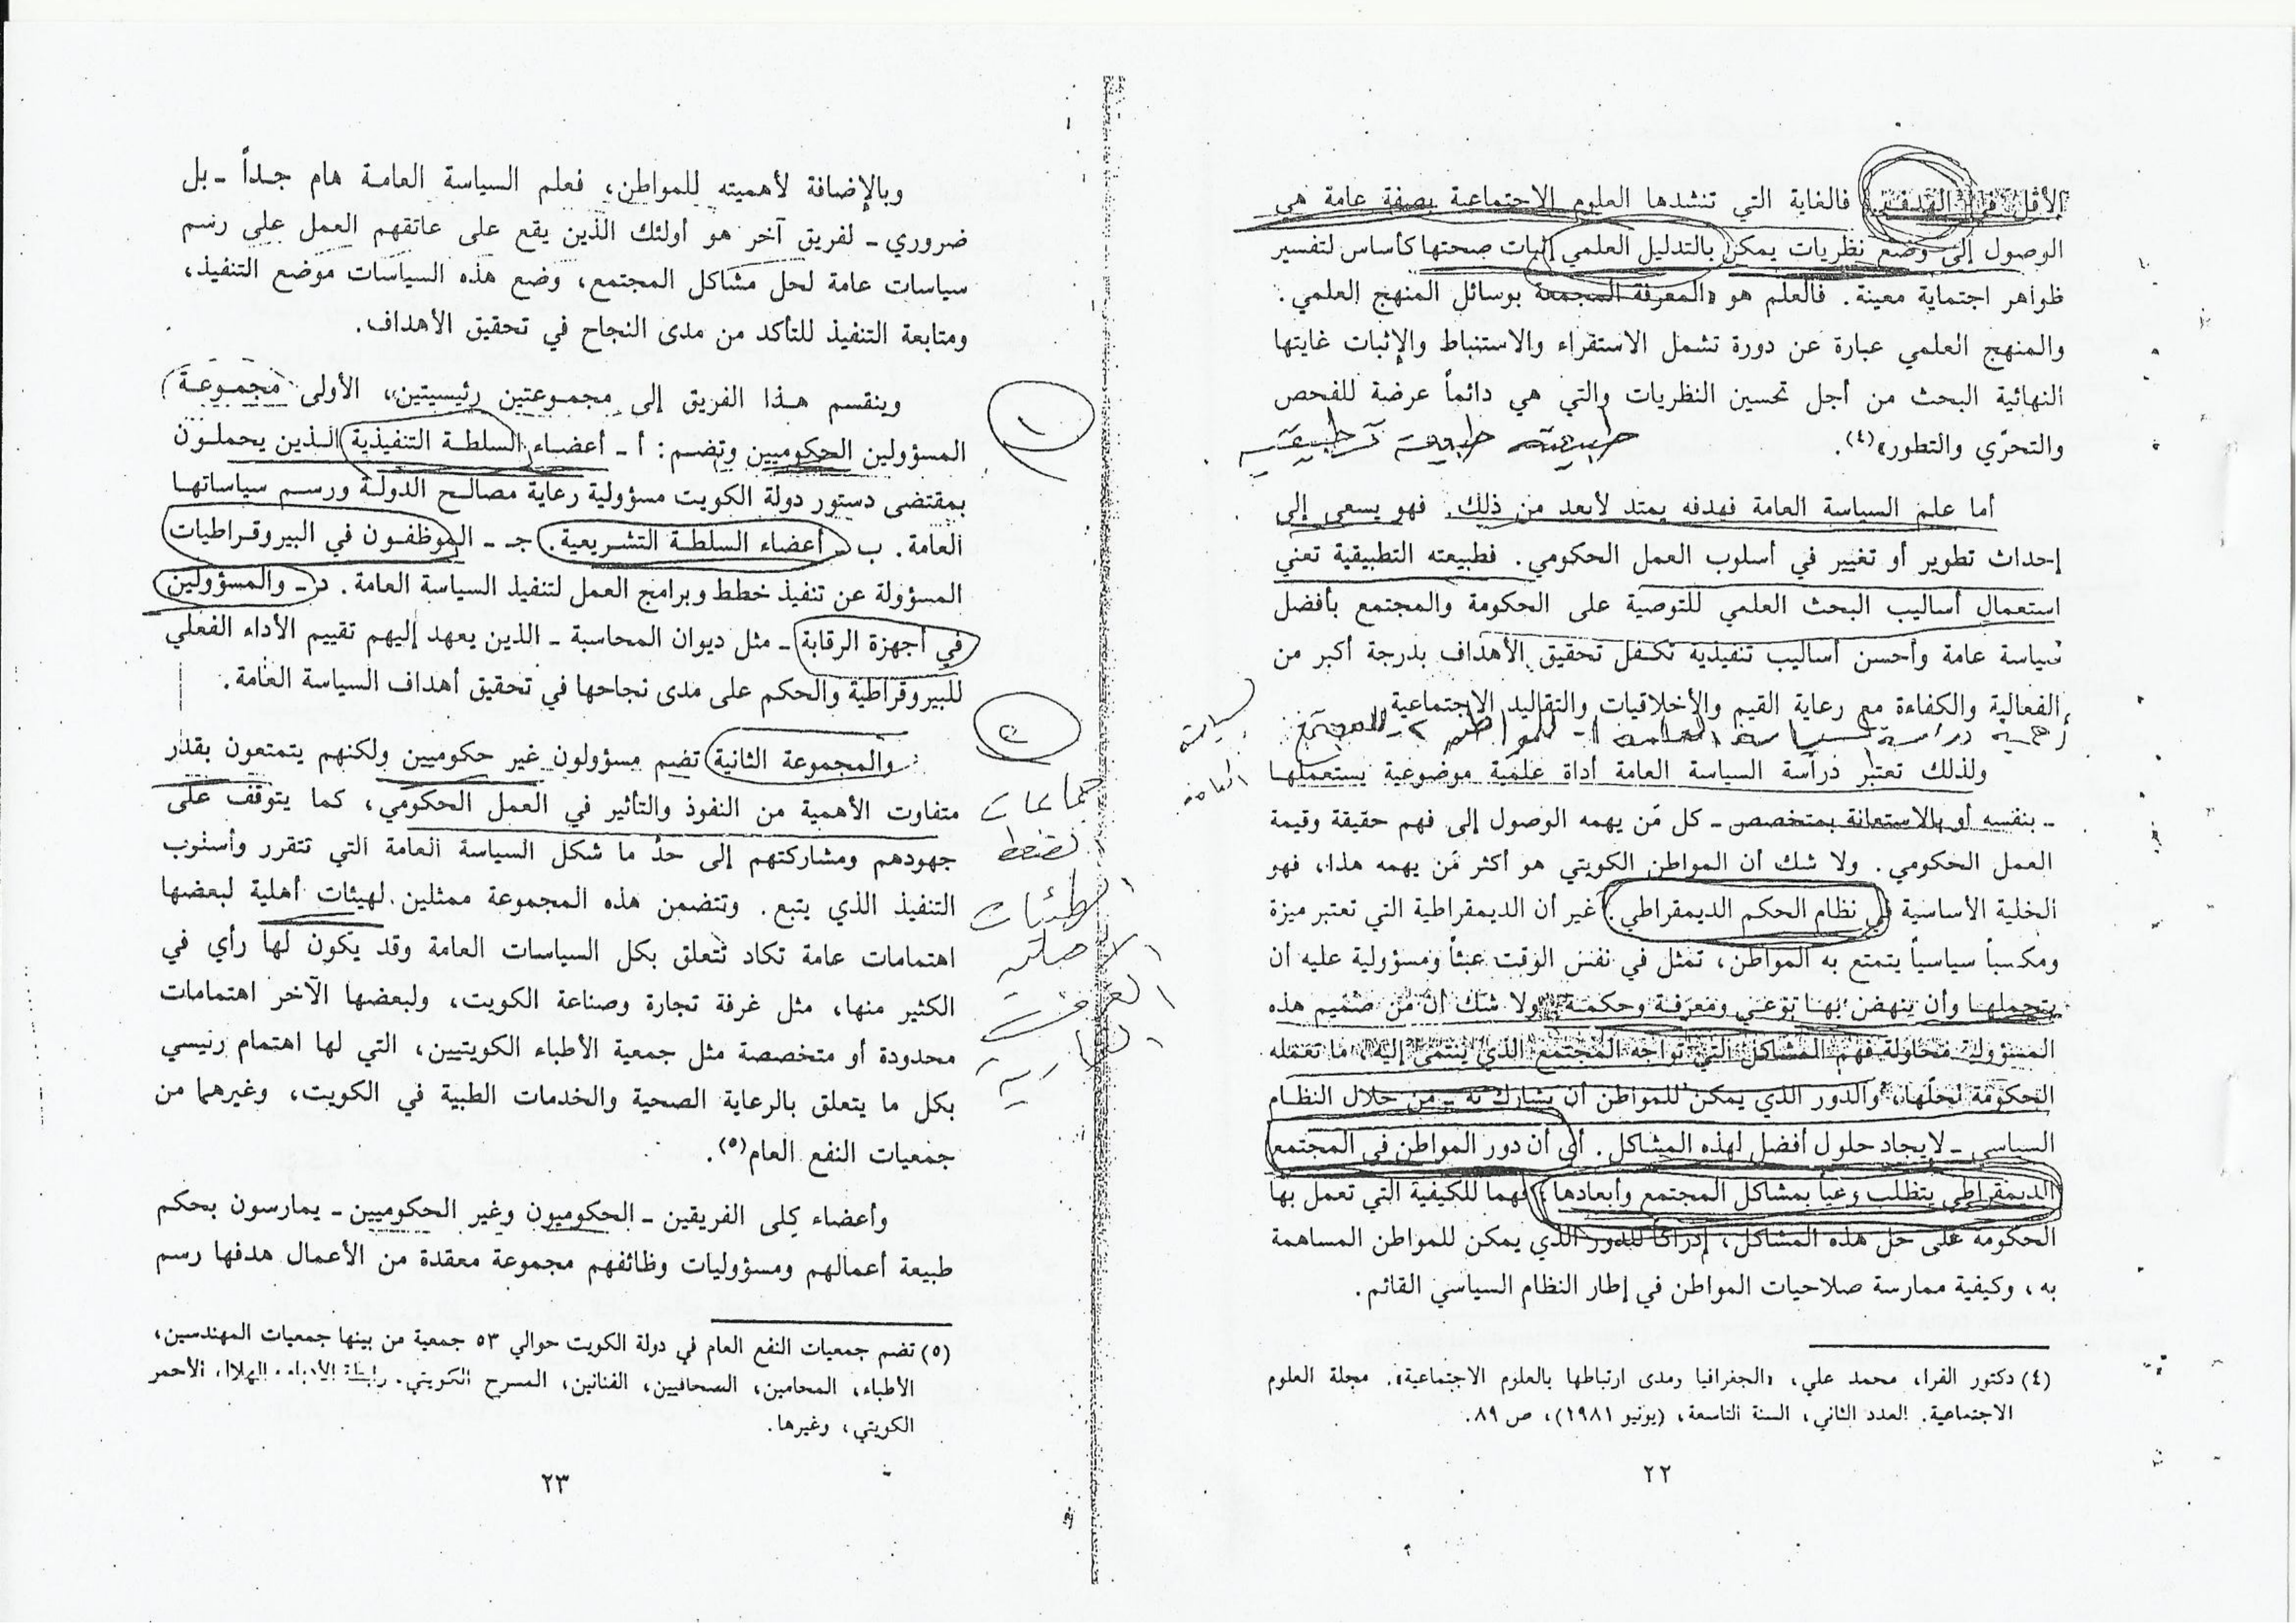 الأقل في الهدف. فالغاية التي تنشدها العلوم الاجتماعية بصفة عامة هي
الوصول إلى وضع نظريات يمكن بالتدليل العلمي إثبات صحتها كأساس لتفسير
ظواهر اجتماية معينة. فالعلم هو «المعرفة المجمعة بوسائل المنهج العلمي.
والمنهج العلمي عبارة عن دورة تشمل الاستقراء والاستنباط والإثبات غايتها
النهائية البحث من أجل تحسين النظريات والتي هي دائماً عرضة للفحص
والتحرّي والتطور»(٤).
طبيعته طبيعة تطبيقية
أما علم السياسة العامة فهدفه يمتد لأبعد من ذلك. فهو يسعى إلى
إحداث تطوير أو تغيير في أسلوب العمل الحكومي. فطبيعته التطبيقية تعني
استعمال أساليب البحث العلمي للتوصية على الحكومة والمجتمع بأفضل
سياسة عامة وأحسن أساليب تنفيذية تكفل تحقيق الأهداف بدرجة أكبر من
الفعالية والكفاءة مع رعاية القيم والأخلاقيات والتقاليد الاجتماعية.
أهمية دراسة السياسة العامة ١- للمواطن ٢- للمجتمع
السياسة
العامة
ولذلك تعتبر دراسة السياسة العامة أداة علمية موضوعية يستعملها
ـ بنفسه أو بالاستعانة بمتخصص ـ كل مَن يهمه الوصول إلى فهم حقيقة وقيمة
العمل الحكومي. ولا شك أن المواطن الكويتي هو أكثر مَن يهمه هذا، فهو
الخلية الأساسية في نظام الحكم الديمقراطي. غير أن الديمقراطية التي تعتبر ميزة
ومكسباً سياسياً يتمتع به المواطن، تمثل في نفس الوقت عبئاً ومسؤولية عليه أن
يتحملها وأن ينهض بها بوعي ومعرفة وحكمة. ولا شك أن من صميم هذه
المسؤولية محاولة فهم المشاكل التي تواجه المجتمع الذي ينتمي إليه، ما تعمله
الحكومة لحلّها، والدور الذي يمكن للمواطن أن يشارك به ـ من خلال النظام
السياسي ـ لإيجاد حلول أفضل لهذه المشاكل. أي أن دور المواطن في المجتمع
الديمقراطي يتطلب وعياً بمشاكل المجتمع وأبعادها، فهما للكيفية التي تعمل بها
الحكومة على حل هذه المشاكل، إدراكاً للدور الذي يمكن للمواطن المساهمة
به، وكيفية ممارسة صلاحيات المواطن في إطار النظام السياسي القائم.
(٤) دكتور الفرا، محمد علي، «الجغرافيا ومدى ارتباطها بالعلوم الاجتماعية». مجلة العلوم
الاجتماعية. العدد الثاني، السنة التاسعة، (يونيو ١٩٨١)، ص ٨٩.
٢٢
وبالإضافة لأهميته للمواطن، فعلم السياسة العامة هام جداً ـ بل
ضروري ـ لفريق آخر هو أولئك الذين يقع على عاتقهم العمل على رسم
سياسات عامة لحل مشاكل المجتمع، وضع هذه السياسات موضع التنفيذ،
ومتابعة التنفيذ للتأكد من مدى النجاح في تحقيق الأهداف.
وينقسم هذا الفريق إلى مجموعتين رئيسيتين، الأولى مجموعة
١
المسؤولين الحكوميين وتضم: أ ـ أعضاء السلطة التنفيذية الذين يحملون
بمقتضى دستور دولة الكويت مسؤولية رعاية مصالح الدولة ورسم سياساتها
العامة. ب ـ أعضاء السلطة التشريعية. جـ ـ الموظفون في البيروقراطيات
المسؤولة عن تنفيذ خطط وبرامج العمل لتنفيذ السياسة العامة. د ـ والمسؤولين
في أجهزة الرقابة ـ مثل ديوان المحاسبة ـ الذين يعهد إليهم تقييم الأداء الفعلي
للبيروقراطية والحكم على مدى نجاحها في تحقيق أهداف السياسة العامة.
٢
والمجموعة الثانية تضم مسؤولون غير حكوميين ولكنهم يتمتعون بقدر
متفاوت الأهمية من النفوذ والتأثير في العمل الحكومي، كما يتوقف على
جهودهم ومشاركتهم إلى حدٍّ ما شكل السياسة العامة التي تتقرر وأسلوب
التنفيذ الذي يتبع. وتتضمن هذه المجموعة ممثلين لهيئات أهلية لبعضها
اهتمامات عامة تكاد تتعلق بكل السياسات العامة وقد يكون لها رأي في
الكثير منها، مثل غرفة تجارة وصناعة الكويت، ولبعضها الآخر اهتمامات
محدودة أو متخصصة مثل جمعية الأطباء الكويتيين، التي لها اهتمام رئيسي
بكل ما يتعلق بالرعاية الصحية والخدمات الطبية في الكويت، وغيرهما من
جمعيات النفع العام(٥).
جماعات
لضغط
الهيئات
الأهلية
الغرفة
التجارية
وأعضاء كِلى الفريقين ـ الحكوميون وغير الحكوميين ـ يمارسون بحكم
طبيعة أعمالهم ومسؤوليات وظائفهم مجموعة معقدة من الأعمال هدفها رسم
(٥) تضم جمعيات النفع العام في دولة الكويت حوالي ٥٣ جمعية من بينها جمعيات المهندسين،
الأطباء، المحامين، الصحافيين، الفنانين، المسرح الكويتي. رابطة الأدباء، الهلال الأحمر
الكويتي، وغيرها.
٢٣